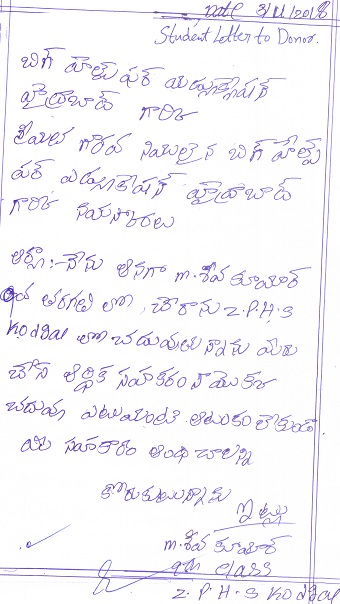 Date 3/11/2018
Student Letter to Donor.
బిగ్ హెల్ప్ ఫర్ ఎడ్యుకేషన్
హైద్రాబాద్ గారికి
గౌరవ నియులైన బిగ్ హెల్ప్
ఫర్ ఎడ్యుకేషన్ హైద్రాబాద్
గారికి నమస్కారలు
ఆర్యా:- నేను అనగా m. శివ కుమార్
తరగతి లో, చేరాను Z.P.H.S
Kodgal లో చదువుతున్నాను మీరు
చేసే ఆర్థిక సహకారం నా యొక్క
చదువు ఎటువంటి ఆటంకం లేకుండా
ఈ సహకారం అందించాలని
కోరుకుటున్నాను
ఇట్లు
m. శివ కుమార్
9th class
Z.P.H.S Kodgal